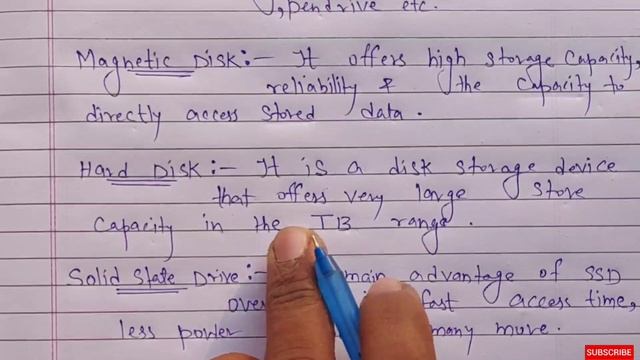 , pendrive etc.
Magnetic Disk:- It offers high storage capacity,
reliability & the capacity to
directly access stored data.
Hard Disk:- It is a disk storage device
that offers very large store
capacity in the TB range.
Solid State Drive:- main advantage of SSD
over fast access time,
less power many more.
SUBSCRIBE